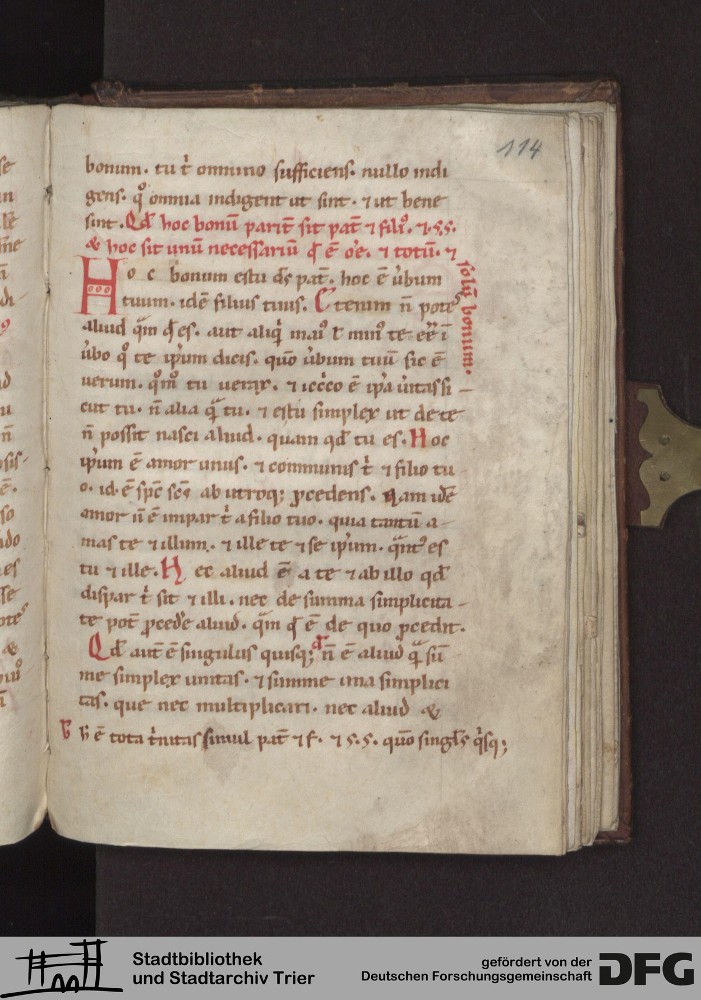 114
bonum. tu t̄ omnino sufficiens. nullo indi
gens. qͦ omnia indigent ut sint. ⁊ ut bene
sint. Qd̄ hoc bonū parit̄ sit pat̄ ⁊ filiꝰ. ⁊ s̄.s̄.
& hoc sit unū necessariū qͥ ē oē. ⁊ totū. ⁊
solū bonum.
Hoc bonum es tu ds̄ pat̄. hoc ē ūbum
tuum. idē filius tuus. Etenim n̄ potest
aliud qͣm qͥ es. aut aliqͥ maiꝰ ł minꝰ te eē ī
ūbo qͦ te ip̄um dicis. quō ūbum tuū sic ē
uerum. qͦmͦ tu uerax. ⁊ iccͦco ē ip̄a ūitas si-
cut tu. n̄ alia qͣ tu. ⁊ es tu simplex ut de te
n̄ possit nasci aliud. quam qd̄ tu es. Hoc
ip̄um ē amor unus. ⁊ communis t̄ ⁊ filio tu-
o. id. ē sp̄c sc̄s ab utroq; p̱cedens. Nam idē
amor n̄ ē impar t̄ a filio tuo. quia tantū a-
mas te ⁊ illum. ⁊ ille te ⁊ se ip̄um. qͣntꝰ es
tu ⁊ ille. Nec aliud ē a te ⁊ ab illo qd̄
dispar t̄ sit ⁊ illi. nec de summa simplicita-
te pot̄ p̱ced̄e aliud. qͣm qͥ ē de quo p̱cedit.
Qd̄ aut̄ ē singulus quisq; n̄ ē aliud qͣ sū
me simplex unitas. ⁊ summe una simplici
tas. que nec multiplicari. nec aliud &
h̄ ē tota t̄nitas simul pat̄ ⁊ f. ⁊ s̄.s̄. quō singls̄ qͥsq;
Stadtbibliothek
und Stadtarchiv Trier
gefördert von der
Deutschen Forschungsgemeinschaft
DFG